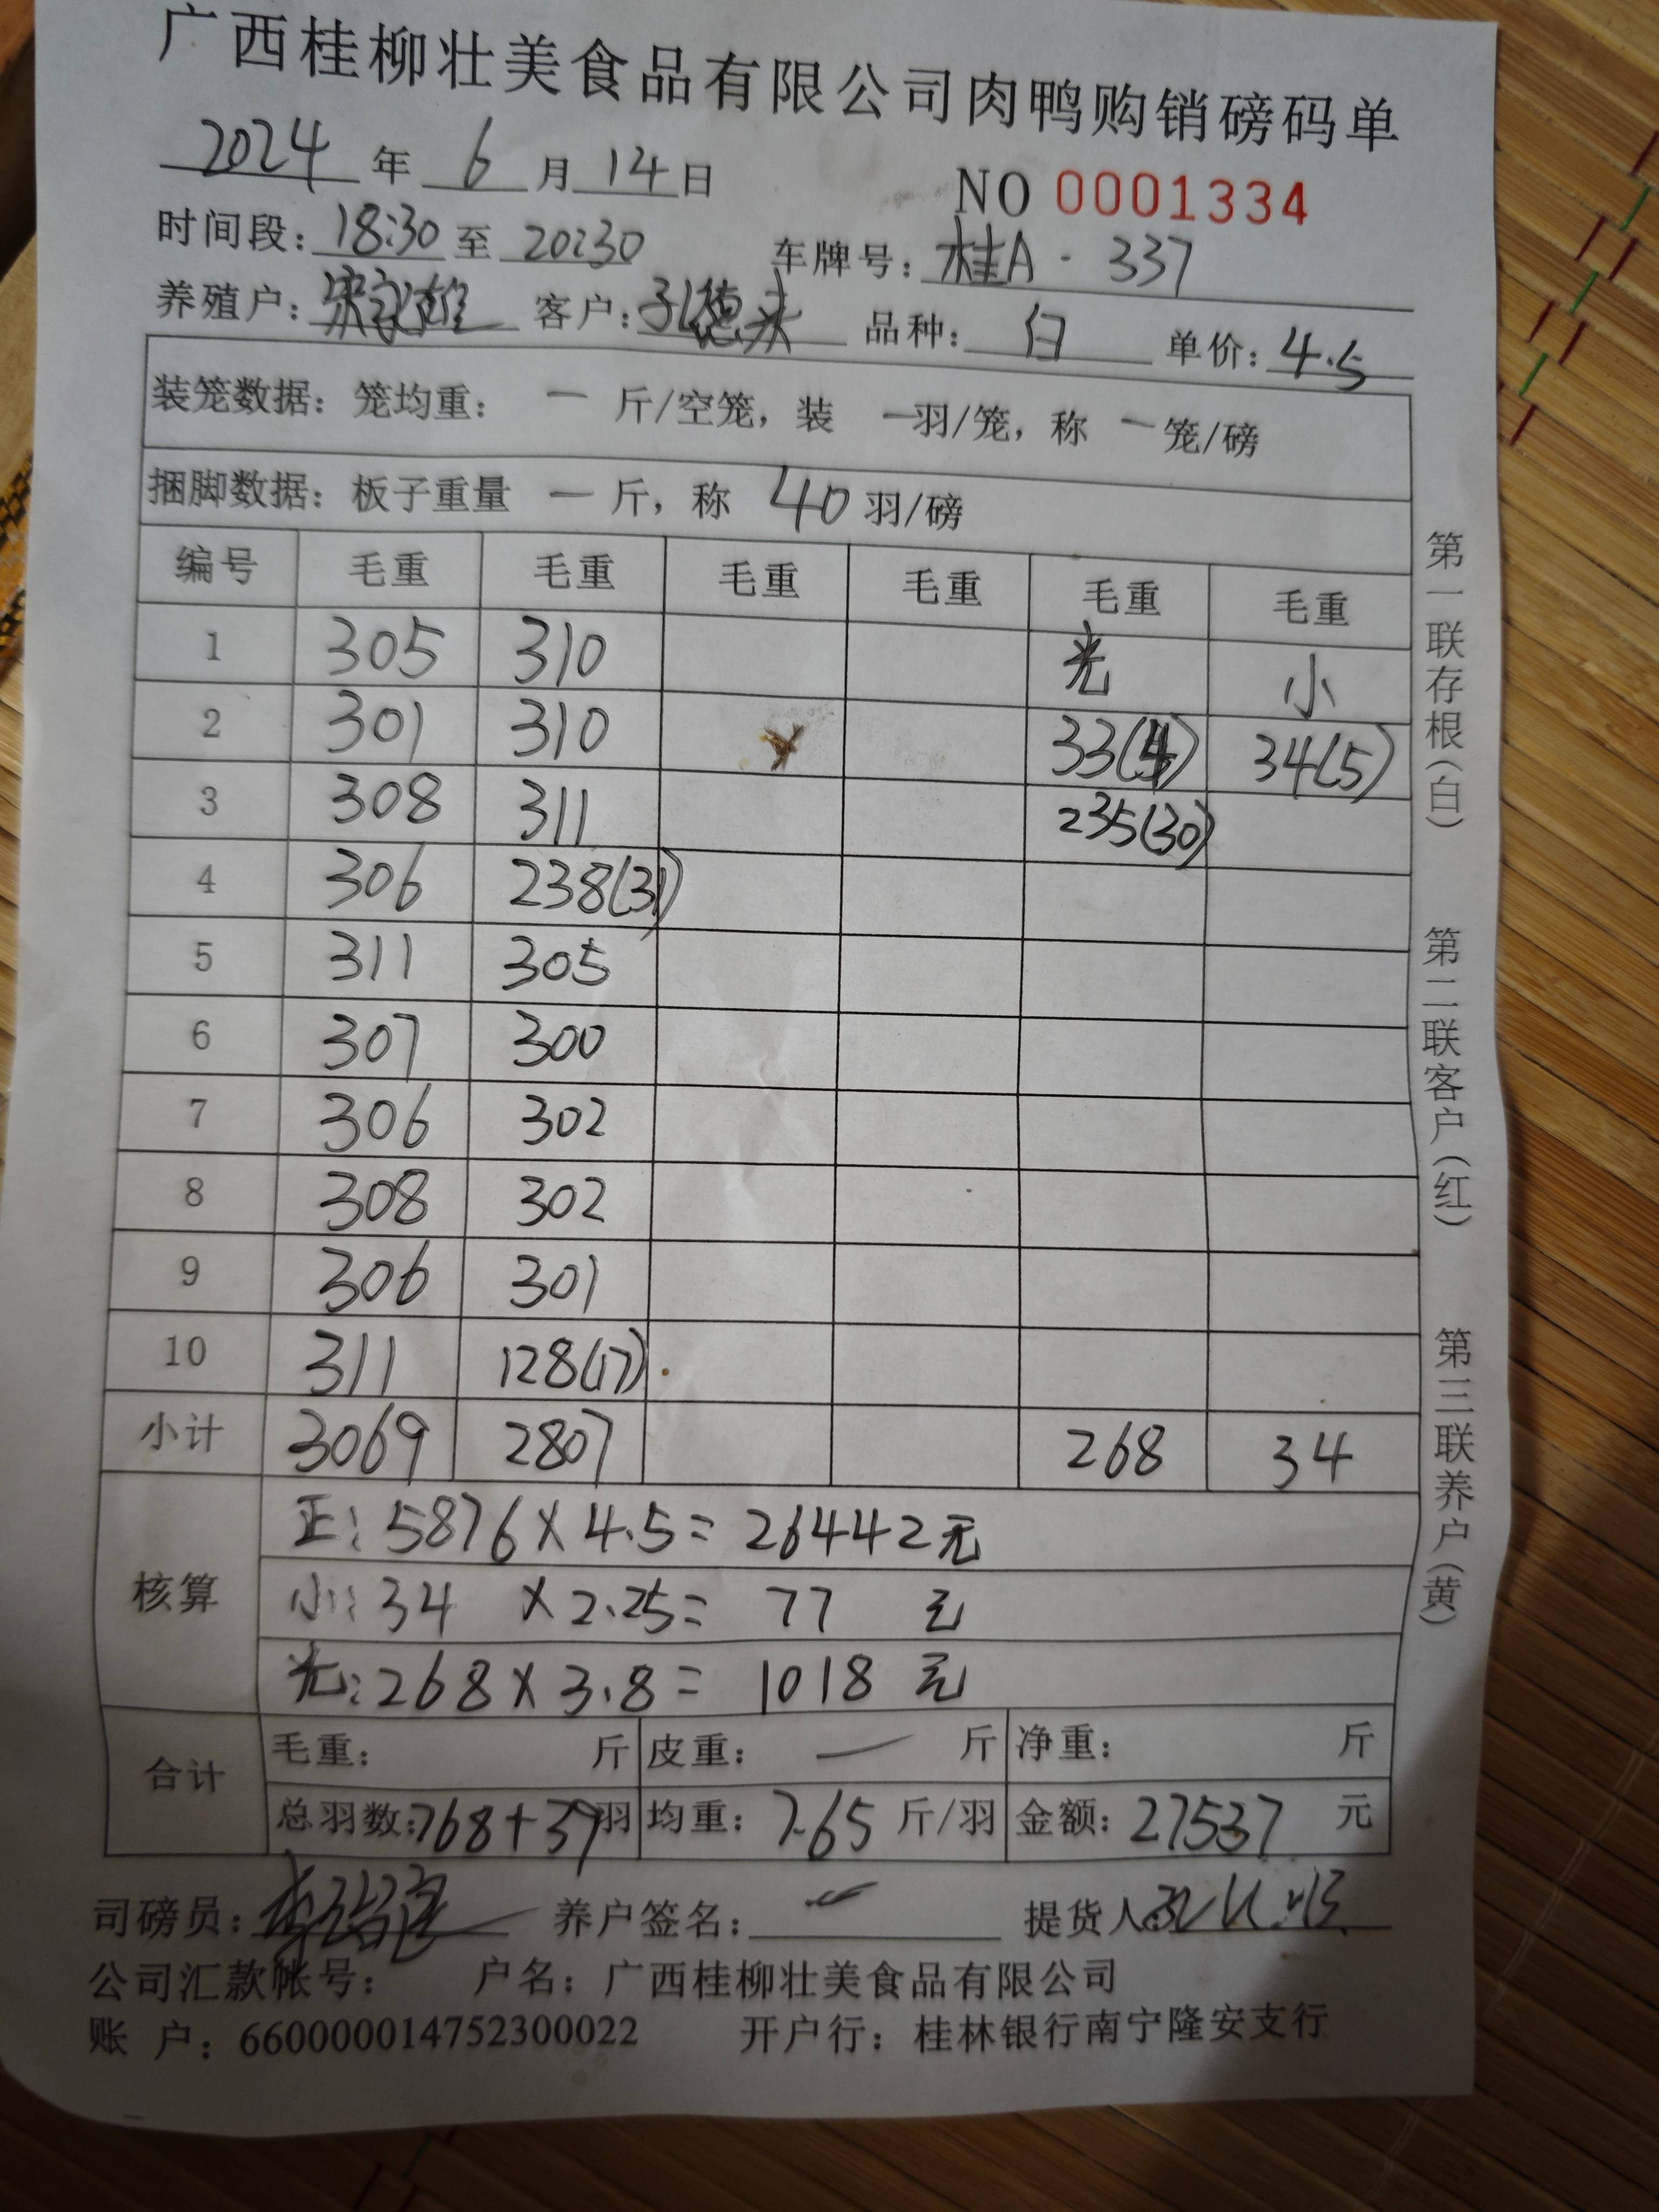 广西桂柳壮美食品有限公司肉鸭购销磅码单
2024 年 6 月 14 日
NO 0001334
时间段: 18:30 至 20:30 车牌号: 桂A·337
养殖户: 客户: 孔德 品种: 白 单价: 4.5
装笼数据: 笼均重: 一 斤/空笼, 装 一羽/笼, 称 一笼/磅
捆脚数据: 板子重量 一 斤, 称 40 羽/磅
编号 毛重 毛重 毛重 毛重 毛重 毛重
1 305 310 光 小
2 301 310 33(4) 34(5)
3 308 311 235(30)
4 306 238(31)
5 311 305
6 307 300
7 306 302
8 308 302
9 306 301
10 311 128(17)
小计 3069 2807 268 34
核算
正: 5876×4.5= 26442元
小: 34 ×2.25= 77 元
光: 268×3.8= 1018 元
合计
毛重: 斤 皮重: 一 斤 净重: 斤
总羽数: 768+39羽 均重: 7.65 斤/羽 金额: 27537 元
司磅员: 养户签名: 提货人:
公司汇款帐号: 户名: 广西桂柳壮美食品有限公司
账 户: 660000014752300022 开户行: 桂林银行南宁隆安支行
第一联存根(白) 第二联客户(红) 第三联养户(黄)